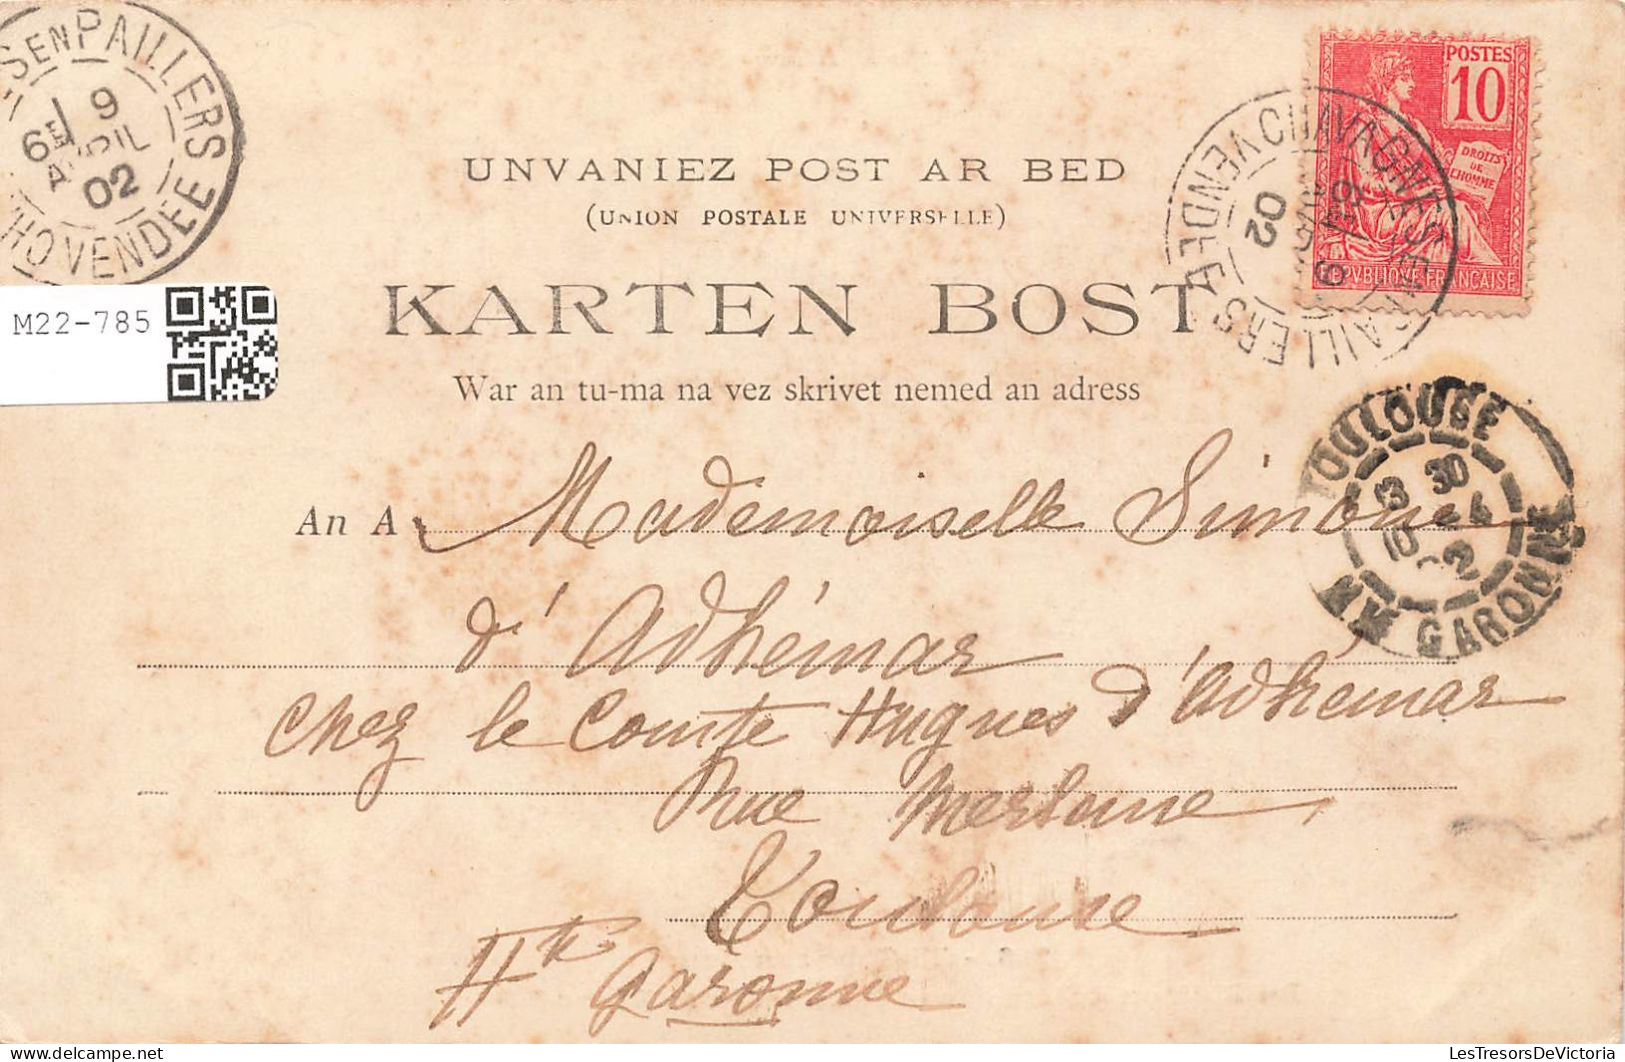 CHAVAGNES EN PAILLERS
VENDEE
6E 9
AVRIL
02
POSTES
10
DROITS
DE
L'HOMME
REPVBLIQVE FRANÇAISE
CHAVAGNES EN PAILLERS
VENDEE
02
UNVANIEZ POST AR BED
(UNION POSTALE UNIVERSELLE)
M22-785
KARTEN BOST
War an tu-ma na vez skrivet nemed an adress
TOULOUSE
13 30
10 -4
02
GARONNE
An A Mademoiselle Simone
d'Adhémar
Chez le Comte Hugues d'Adhemar
Rue Merlane,
Toulouse
Hte Garonne
LesTresorsDeVictoria